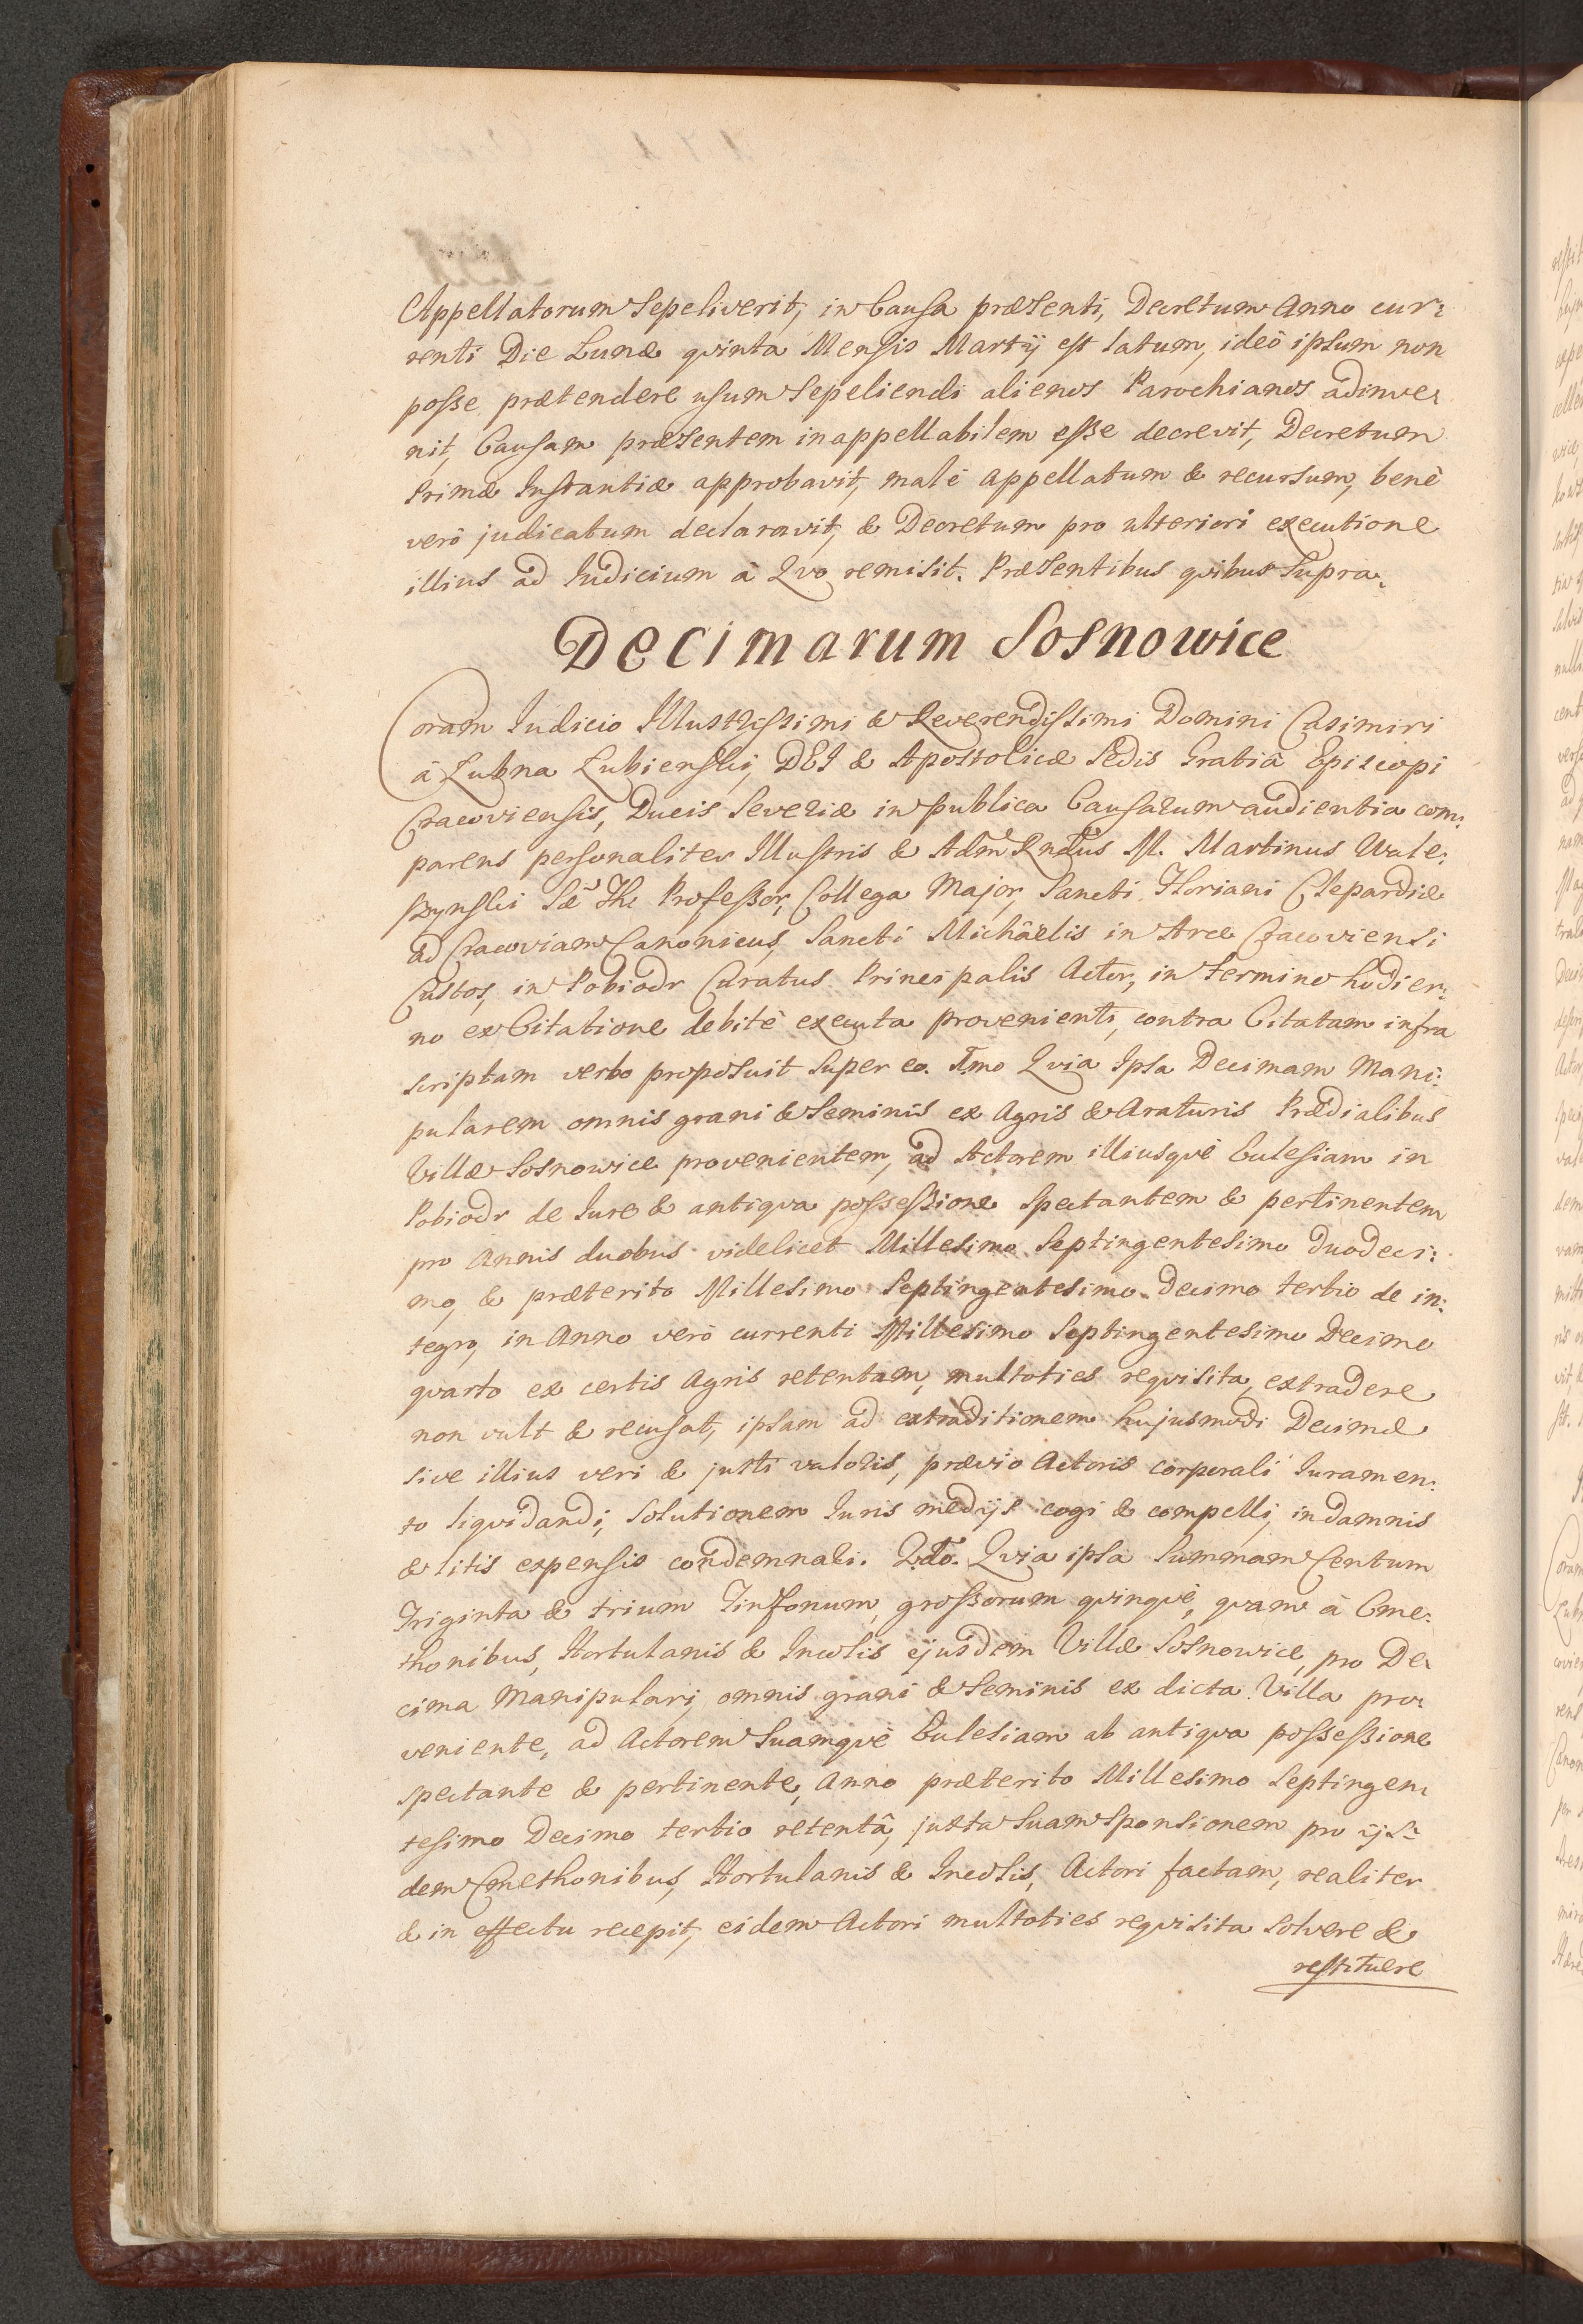 Appellatorum Sepeliverit, in Causa præsenti, Decretum Anno cur:
renti Die Lunæ qvinta Mensis Martij est latum, ideò ipsum non
posse prætendere usum Sepeliendi alienos Parochianos adinve:
nit, Causam præsentem inappellabilem esse decrevit, Decretum
Primæ Instantiæ approbavit, malè appellatum & recursum, benè
verò judicatum declaravit, & Decretum pro ulteriori executione
illius ad Iudicium à Qvo remisit. Præsentibus qvibus Supra.
Decimarum Sosnowice
Coram Iudicio Illustrissimi & Reverendissimi Domini Casimiri
à Lubna Lubienski, DEI & Apostolicæ Sedis Gratia Episcopi
Cracoviensis, Ducis Severiæ in publica Causarum audientia com:
parens personaliter Illustris & Adm Rndus M. Martinus Wale:
szynski Sæ Th: Professor, Collega Major, Sancti Floriani Clepardiæ
ad Cracoviam Canonicus, Sancti Michaelis in Arce Cracoviensi
Custos, in Pobiedr Curatus Principalis Actor, in termino hodier:
no ex Citatione debitè executa provenienti, contra Citatam infra
scriptam verbo proposuit super eo. Imo Qvia Ipsa Decimam Mani:
pularem omnis grani & Seminis ex Agris & Araturis Prædialibus
Villæ Sosnowice provenientem, ad Actorem illiusqvè Ecclesiam in
Pobiedr de Iure & antiqva possessione spectantem & pertinentem
pro Annis duobus videlicet Millesimo Septingentesimo duodeci:
mo, & præterito Millesimo Septingentesimo Decimo tertio de in:
tegro, in Anno verò currenti Millesimo Septingentesimo Decimo
qvarto ex certis Agris retentam, multoties reqvisita, extradere
non vult & recusat, ipsam ad extraditionem hujusmodi Decimæ
sive illius veri & justi valoris, prævio Actoris corporali Iuramen:
to liqvidandi, solutionem Iuris medijs cogi & compelli, in damnis
& litis expensis condemnari. 2do. Qvia ipsa Summam Centum
Triginta & trium Tinfonum, grossorum qvinqvè, qvam à Cme:
thonibus, Hortulanis & Incolis ejusdem Villæ Sosnowice, pro De:
cima Manipulari, omnis grani & Seminis ex dicta Villa pro:
veniente, ad Actorem Suamqvè Ecclesiam ab antiqva possessione
spectante & pertinente, Anno præterito Millesimo Septingen:
tesimo Decimo tertio retentâ, juxta Suam Sponsionem pro ijs:
dem Cmethonibus, Hortulanis & Incolis, Actori factam, realiter
& in effectu recepit, eidem Actori multoties reqvisita solvere &
restituere